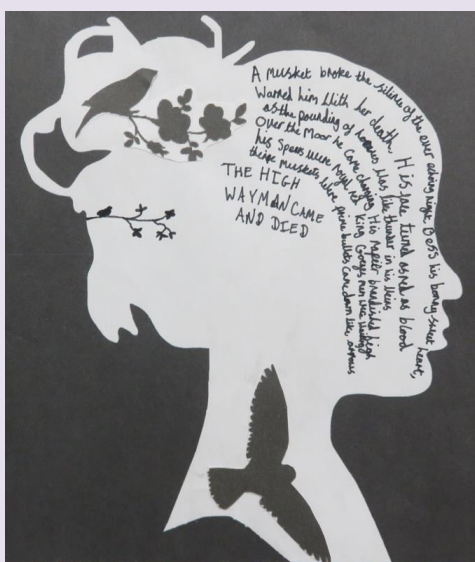 A musket broke the silence of the ever aching night. Bess his bonny sweet heart,
Warned him With her death. His face turned as red as blood
as the pounding of hooves Was like thunder in his Veins
Over the Moor he came charging His rapier brandished high
his Spurs were royal red King Georges men were waiting
there muskets were prime bullets came down like arrows
THE HIGH
WAYMAN CAME
AND DIED